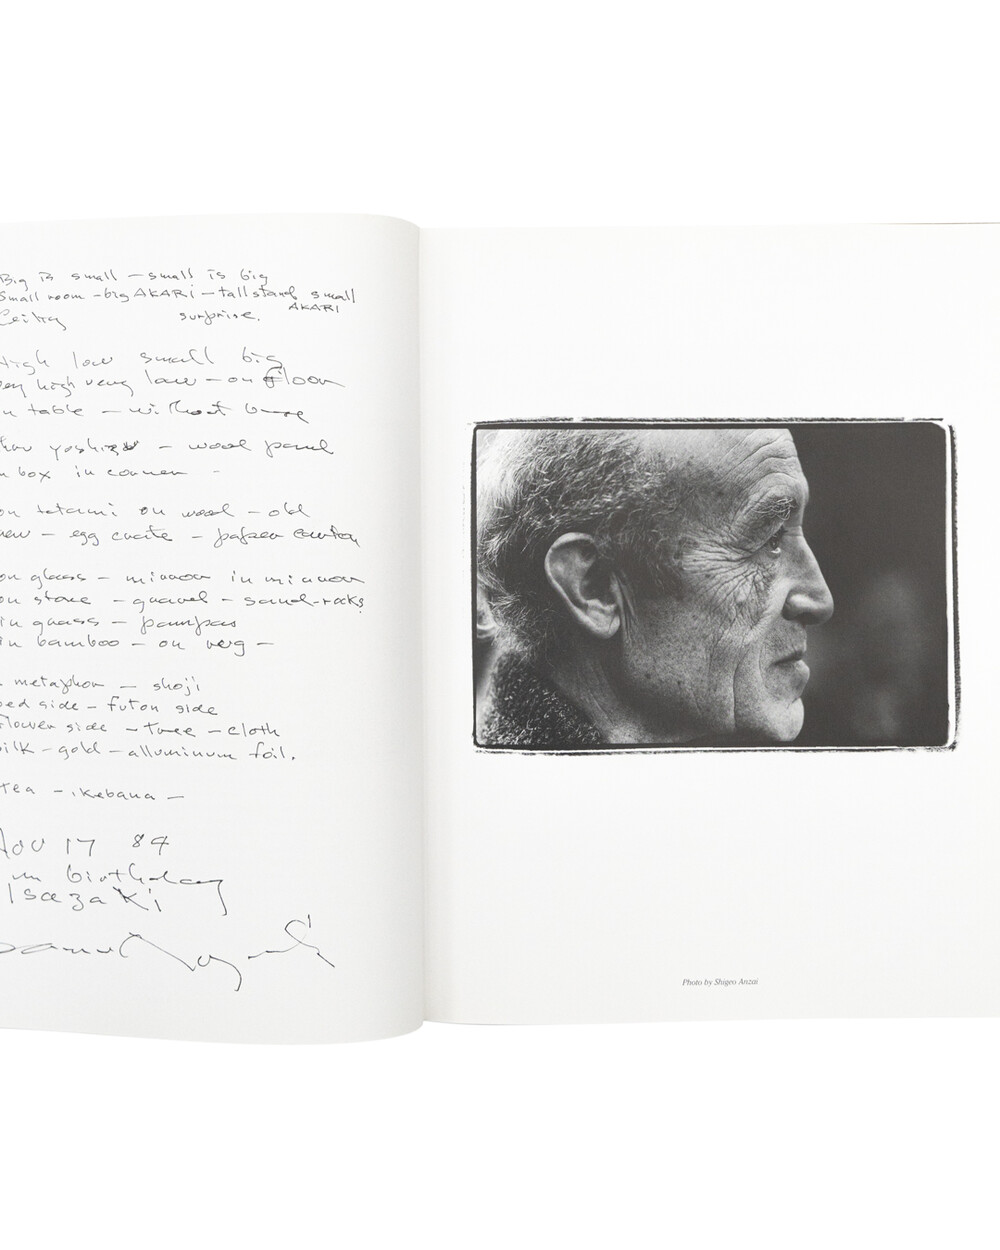 Big is small – small is big
small room – big AKARI – tall stand small
AKARI
ceiling surprise.
High low small big
very high very low – on floor
on table – without base
yoshizu – wood panel
in box in corner –
on tatami on wood – old
new – egg crate – paper carton
on glass – mirror in mirror
on stone – gravel – sand-rocks
in grass – pampas
in bamboo – on –
metaphor – shoji
bed side – futon side
flower side – tree – cloth
silk – gold – alluminum foil.
tea – ikebana –
Nov 17 84
birthday
Isazaki
Photo by Shigeo Anzai